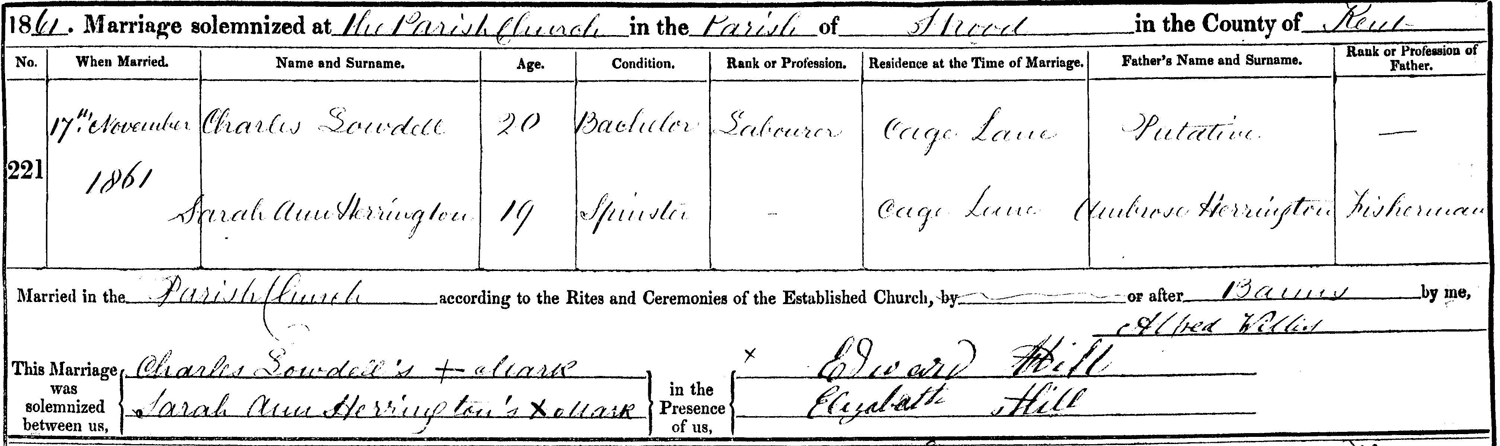 1861. Marriage solemnized at The Parish Church in the Parish of Strood in the County of Kent
No. When Married. Name and Surname. Age. Condition. Rank or Profession. Residence at the Time of Marriage. Father's Name and Surname. Rank or Profession of Father.
221 17th November 1861 Charles Lowdell 20 Bachelor Labourer Cage Lane Putative —
Sarah Ann Herrington 19 Spinster - Cage Lane Ambrose Herrington Fisherman
Married in the Parish Church according to the Rites and Ceremonies of the Established Church, by or after Banns by me,
Alfred Willis
This Marriage was solemnized between us, Charles Lowdell's + Mark in the Presence of us, x Edward Hill
Sarah Ann Herrington's X Mark Elizabeth Hill